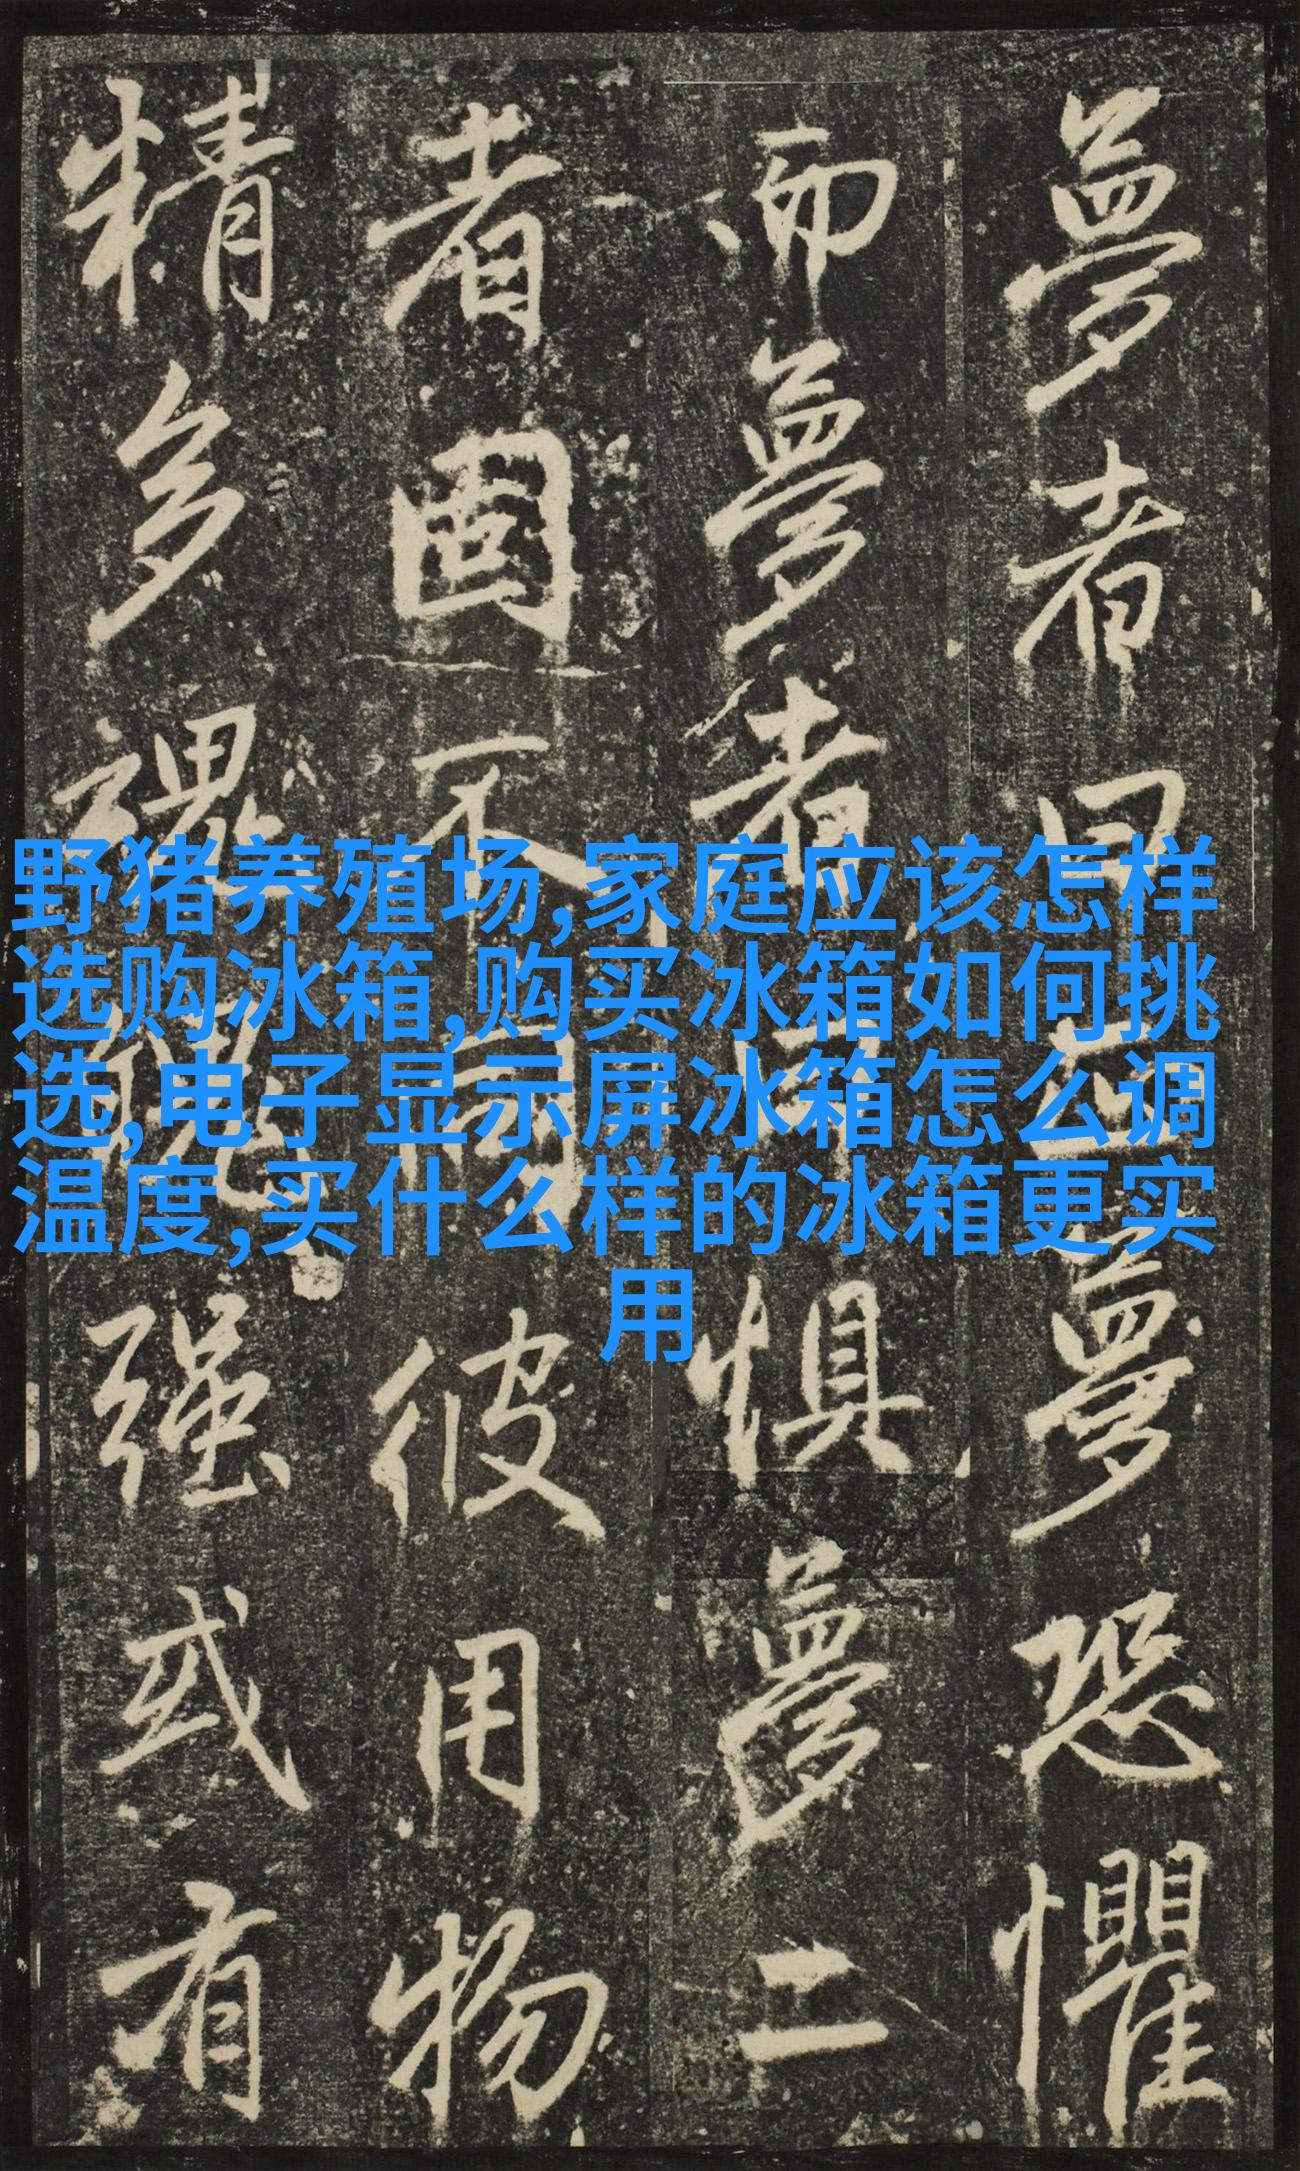 夢者曰正夢恐懼
而夢者曰惧夢二
者固不同彼用物
精多魂魄强或有
野猪养殖场,家庭应该怎样
选购冰箱,购买冰箱如何挑
选,电子显示屏冰箱怎么调
温度,买什么样的冰箱更实
用